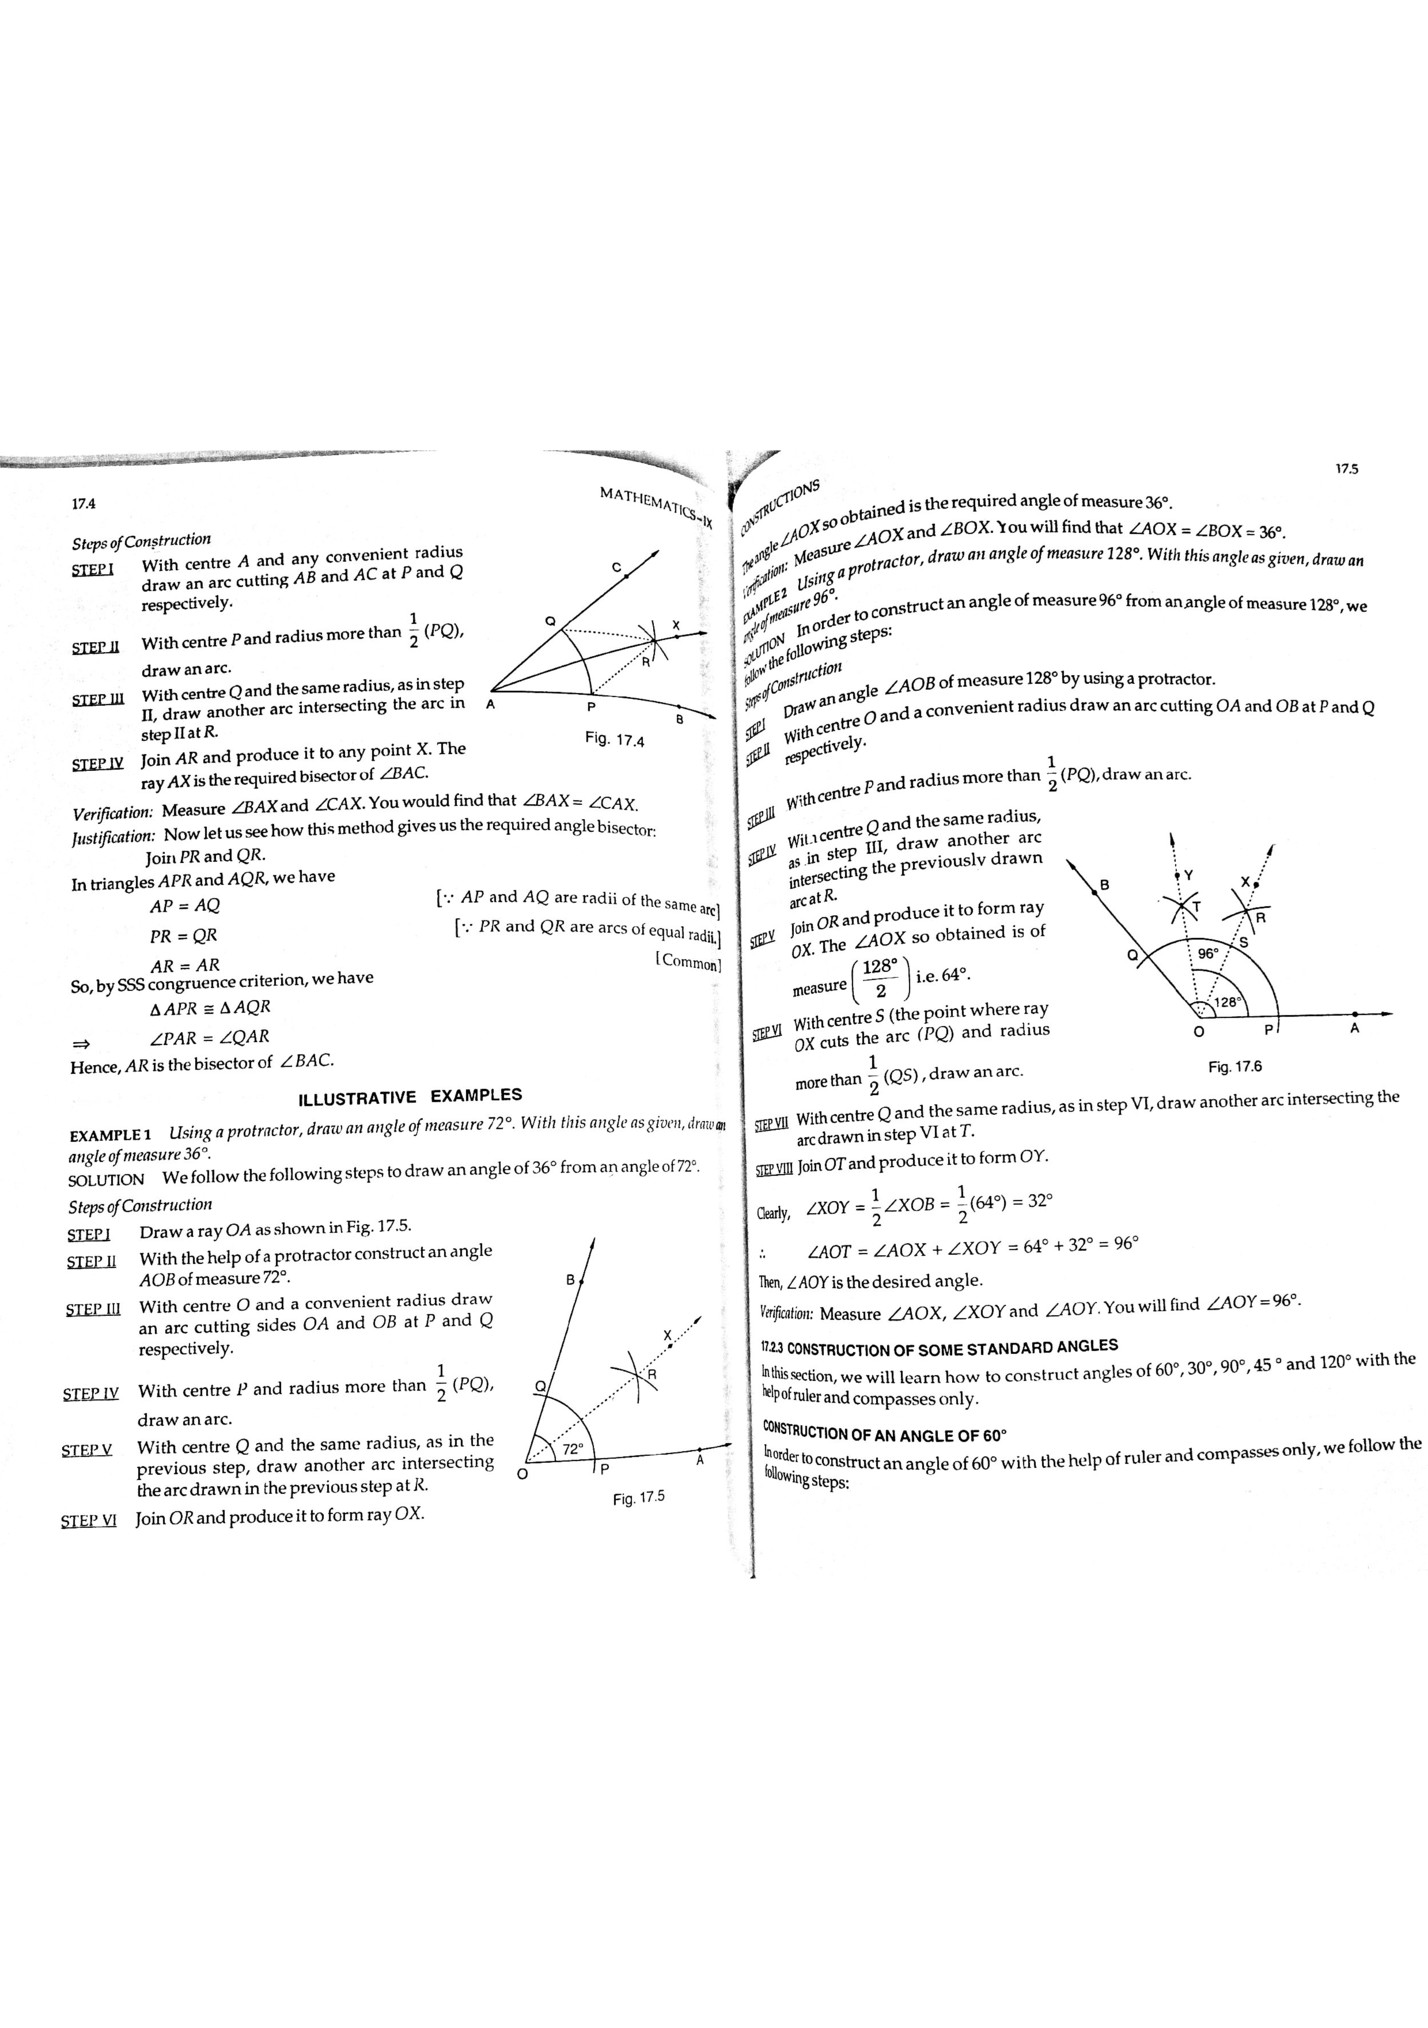 17.4
MATHEMATICS–IX
Steps of Construction
STEP I With centre A and any convenient radius
draw an arc cutting AB and AC at P and Q
respectively.
STEP II With centre P and radius more than 1/2 (PQ),
draw an arc.
STEP III With centre Q and the same radius, as in step
II, draw another arc intersecting the arc in
step II at R.
STEP IV Join AR and produce it to any point X. The
ray AX is the required bisector of ∠BAC.
C
Q
X
R
A
P
B
Fig. 17.4
Verification: Measure ∠BAX and ∠CAX. You would find that ∠BAX = ∠CAX.
Justification: Now let us see how this method gives us the required angle bisector:
Join PR and QR.
In triangles APR and AQR, we have
AP = AQ [∵ AP and AQ are radii of the same arc]
PR = QR [∵ PR and QR are arcs of equal radii.]
AR = AR [Common]
So, by SSS congruence criterion, we have
Δ APR ≅ Δ AQR
⇒ ∠PAR = ∠QAR
Hence, AR is the bisector of ∠BAC.
ILLUSTRATIVE EXAMPLES
EXAMPLE 1 Using a protractor, draw an angle of measure 72°. With this angle as given, draw an
angle of measure 36°.
SOLUTION We follow the following steps to draw an angle of 36° from an angle of 72°.
Steps of Construction
STEP I Draw a ray OA as shown in Fig. 17.5.
STEP II With the help of a protractor construct an angle
AOB of measure 72°.
STEP III With centre O and a convenient radius draw
an arc cutting sides OA and OB at P and Q
respectively.
STEP IV With centre P and radius more than 1/2 (PQ),
draw an arc.
STEP V With centre Q and the same radius, as in the
previous step, draw another arc intersecting
the arc drawn in the previous step at R.
STEP VI Join OR and produce it to form ray OX.
B
X
Q
R
72°
O
P
A
Fig. 17.5
CONSTRUCTIONS
17.5
The angle ∠AOX so obtained is the required angle of measure 36°.
Verification: Measure ∠AOX and ∠BOX. You will find that ∠AOX = ∠BOX = 36°.
EXAMPLE 2 Using a protractor, draw an angle of measure 128°. With this angle as given, draw an
angle of measure 96°.
SOLUTION In order to construct an angle of measure 96° from an angle of measure 128°, we
follow the following steps:
Steps of Construction
STEP I Draw an angle ∠AOB of measure 128° by using a protractor.
STEP II With centre O and a convenient radius draw an arc cutting OA and OB at P and Q
respectively.
STEP III With centre P and radius more than 1/2 (PQ), draw an arc.
STEP IV With centre Q and the same radius,
as in step III, draw another arc
intersecting the previously drawn
arc at R.
STEP V Join OR and produce it to form ray
OX. The ∠AOX so obtained is of
measure (128°/2) i.e. 64°.
STEP VI With centre S (the point where ray
OX cuts the arc (PQ) and radius
more than 1/2 (QS), draw an arc.
B
Y
X
T
R
Q
S
96°
128°
O
P
A
Fig. 17.6
STEP VII With centre Q and the same radius, as in step VI, draw another arc intersecting the
arc drawn in step VI at T.
STEP VIII Join OT and produce it to form OY.
Clearly, ∠XOY = 1/2 ∠XOB = 1/2 (64°) = 32°
∴ ∠AOT = ∠AOX + ∠XOY = 64° + 32° = 96°
Then, ∠AOY is the desired angle.
Verification: Measure ∠AOX, ∠XOY and ∠AOY. You will find ∠AOY = 96°.
17.2.3 CONSTRUCTION OF SOME STANDARD ANGLES
In this section, we will learn how to construct angles of 60°, 30°, 90°, 45° and 120° with the
help of ruler and compasses only.
CONSTRUCTION OF AN ANGLE OF 60°
In order to construct an angle of 60° with the help of ruler and compasses only, we follow the
following steps: